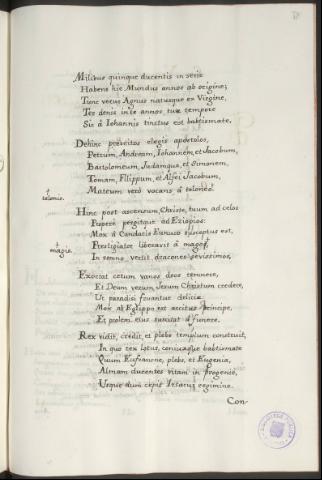 Milibus quinque ducentis in serie
Habens hic Mundus annos ab origine;
Tunc verus Agnus natusque ex Virgine,
Ter denis inde annos tuæ tempore
Sic à Iohannis tinctus est babtismate.
Dehinc præceitos elegis apostolos,
Petrum, Andream, Iohannem, et Jacobum,
Bartolomeum, Judamque, et Simonem,
Tomam, Filippum, et Alfei Jacobum,
Mateum verò vocans à teloneo.
telonio.
Hinc post ascensum, Christe, tuum ad celos
pergitque ad Eziopios:
Mox à Candacis Eunuco susceptus est,
magis.
Prestigiatos liberavit à magos,
In somno vertit dracones sevissimos,
Exociat cetum vanos deos temnere,
Et Deum verum Jesum Christum credere,
Ut paradisi fruantur delicie
Mox ab Eglippo est accitus principe,
Et prolem eius suscitat à funere.
Rex vidit, credit, et plebs templum construit,
In quo rex lotus, cunctaque babtismate
Quum Eufranone, plebs, et Eugenia,
Almam ducentes vitam in progenie,
Usque dum cepit Irtacus regimine.
Con-